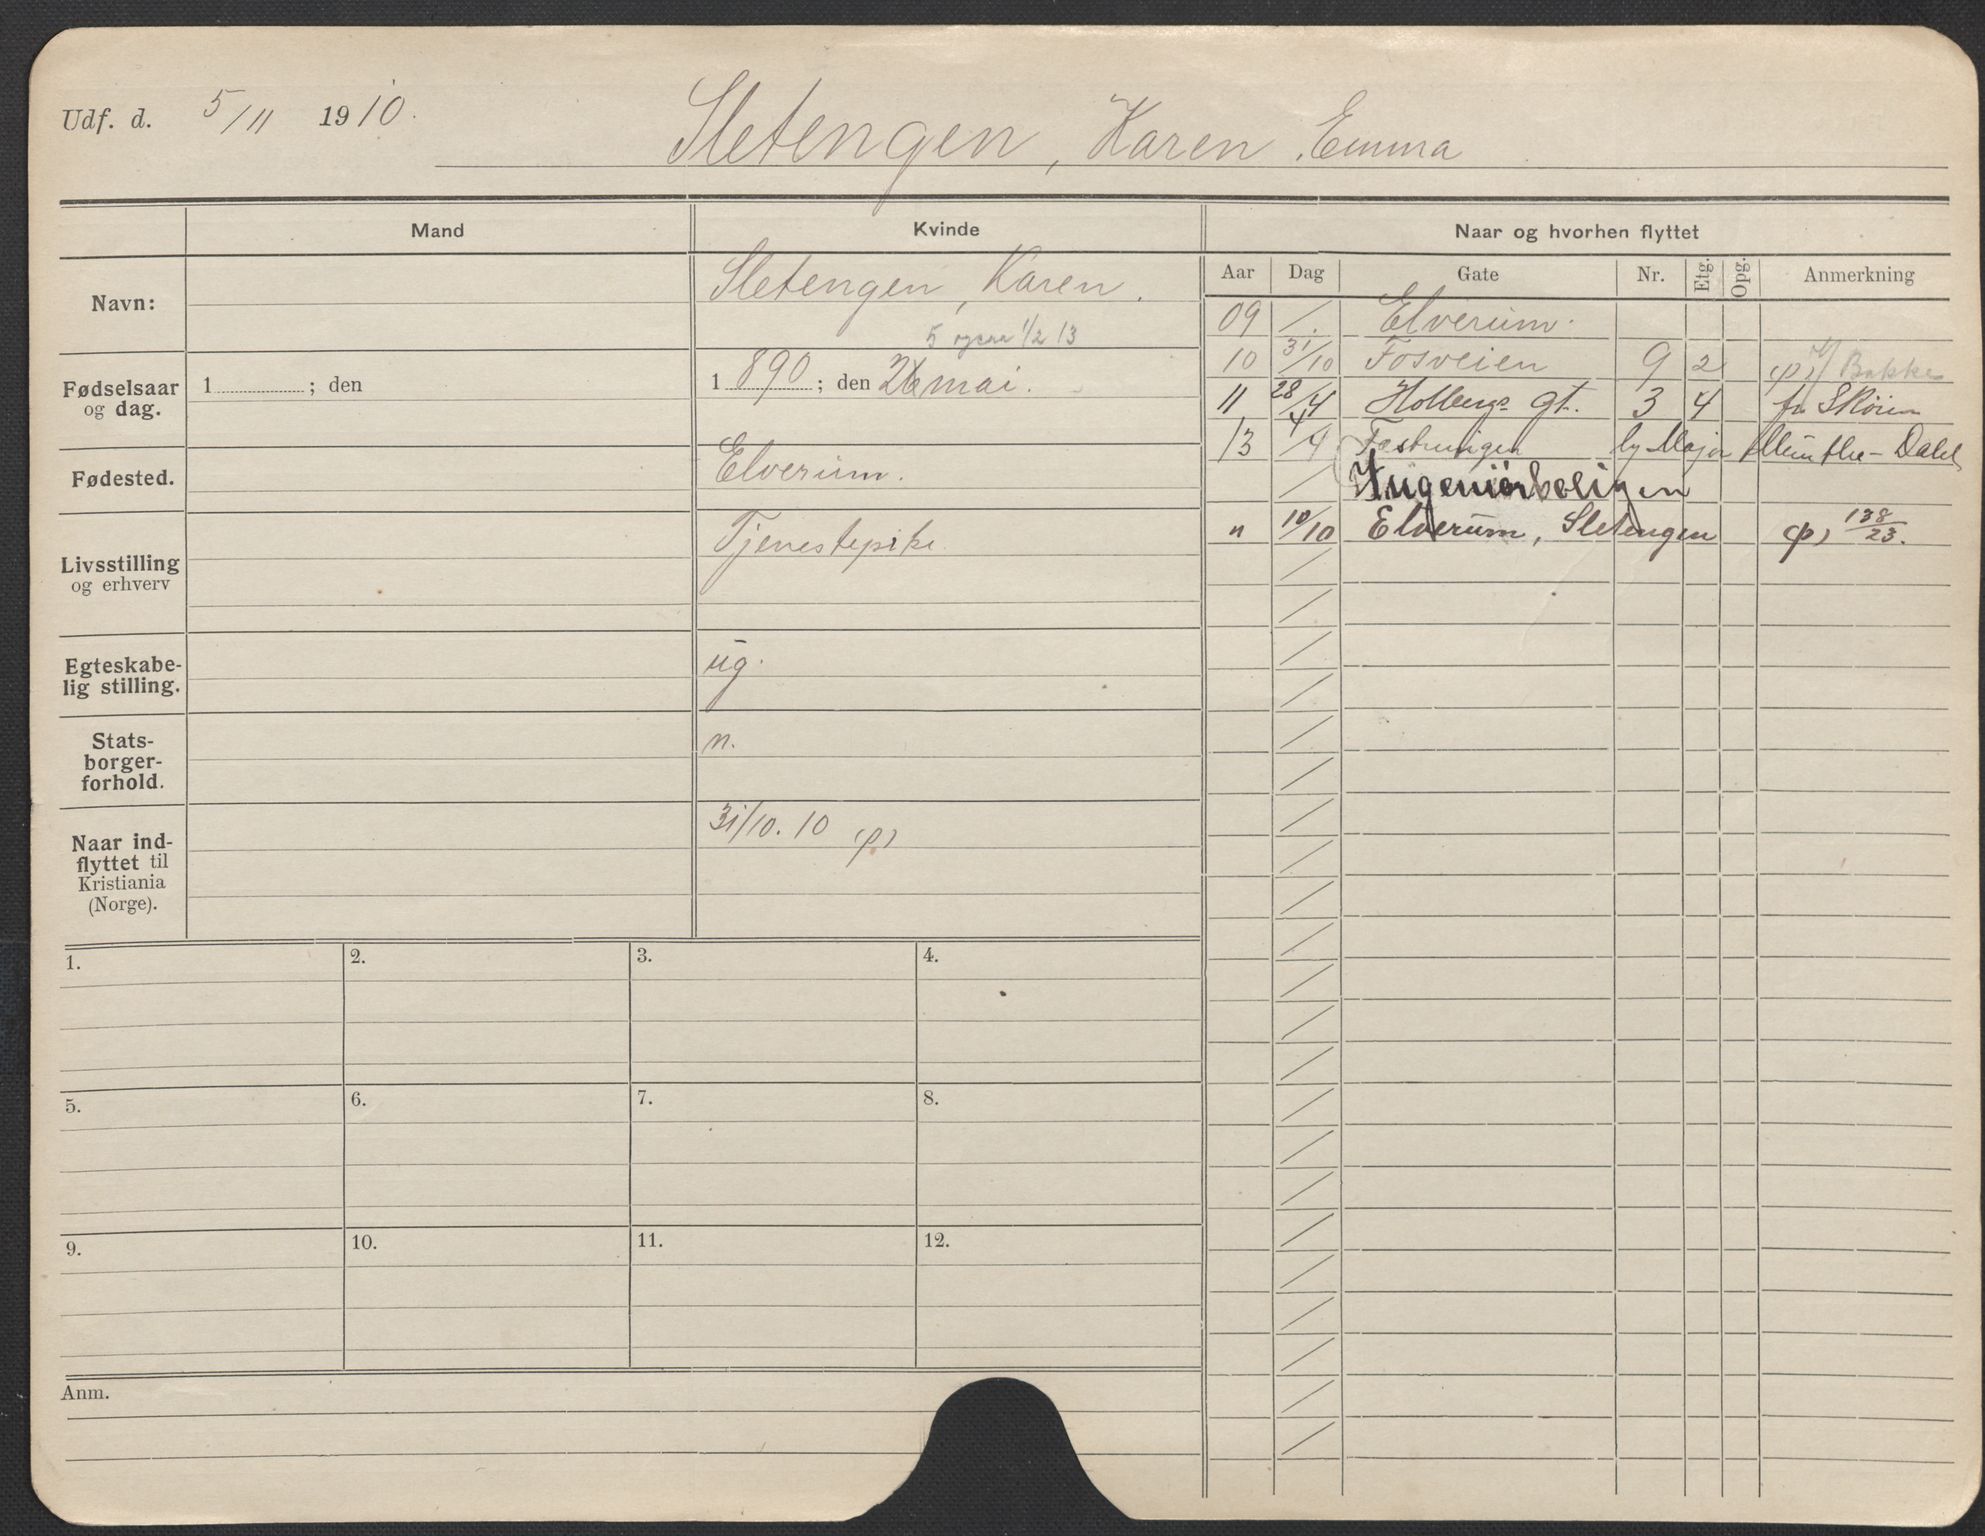 Udf. d. 5/11 1910.
Sletengen, Karen Emma
Mand
Kvinde
Naar og hvorhen flyttet
Aar Dag Gate Nr. Etg. Opg. Anmerkning
Navn:
Sletengen, Karen.
5 1/2 13
Fødselsaar
og dag.
1 ; den
1 890 ; den 26 mai.
Fødested.
Elverum.
Livsstilling
og erhverv
Tjenestepike
Egteskabe-
lig stilling.
ug.
Stats-
borger-
forhold.
n.
Naar ind-
flyttet til
Kristiania
(Norge).
31/10. 10 (p)
09 / Elverum.
10 31/10 Fosveien 9 2 Bakke
11 28/4 Holbergs Gt. 3 4 fr Skøien
13 4/4 Fæstningen Major Munthe-Dahl
Ingeniørboligen
" 10/10 Elverum, Sletengen (p) 138/23.
1. 2. 3. 4.
5. 6. 7. 8.
9. 10. 11. 12.
Anm.